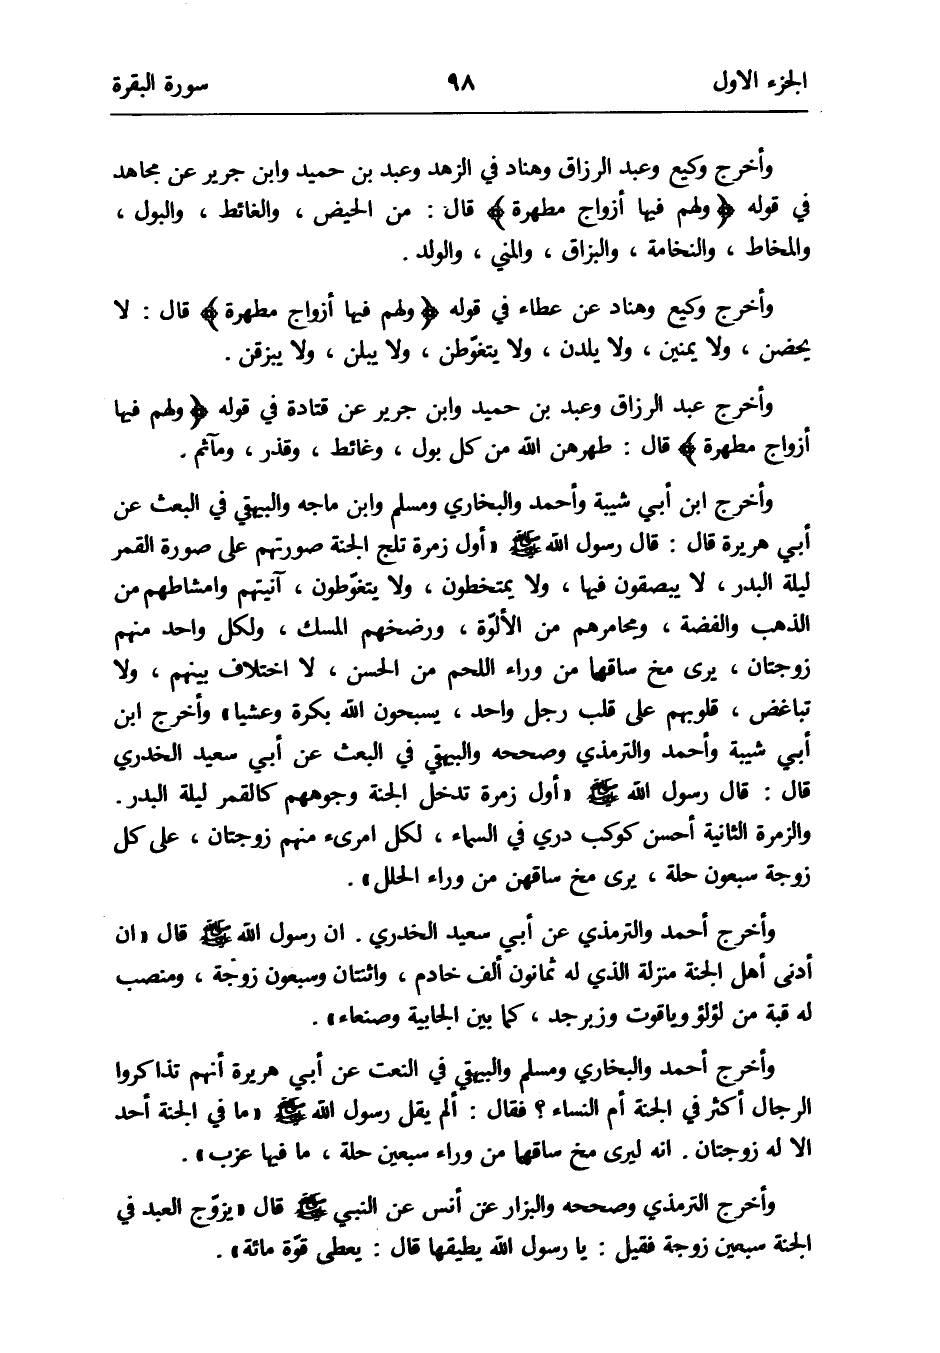 الجزء الاول ٩٨ سورة البقرة
وأخرج وكيع وعبد الرزاق وهناد في الزهد وعبد بن حميد وابن جرير عن مجاهد
في قوله ﴿ ولهم فيها أزواج مطهرة ﴾ قال : من الحيض ، والغائط ، والبول ،
والمخاط ، والنخامة ، والبزاق ، والمني ، والولد .
وأخرج وكيع وهناد عن عطاء في قوله ﴿ ولهم فيها أزواج مطهرة ﴾ قال : لا
يحضن ، ولا يمنين ، ولا يلدن ، ولا يتغوّطن ، ولا يبلن ، ولا يبزقن .
وأخرج عبد الرزاق وعبد بن حميد وابن جرير عن قتادة في قوله ﴿ ولهم فيها
أزواج مطهرة ﴾ قال : طهرهن الله من كل بول ، وغائط ، وقذر ، ومآثم .
وأخرج ابن أبي شيبة وأحمد والبخاري ومسلم وابن ماجه والبيهقي في البعث عن
أبي هريرة قال : قال رسول الله ﷺ «أول زمرة تلج الجنة صورتهم على صورة القمر
ليلة البدر ، لا يبصقون فيها ، ولا يمتخطون ، ولا يتغوّطون ، آنيتهم وامشاطهم من
الذهب والفضة ، ومجامرهم من الألوّة ، ورضخهم المسك ، ولكل واحد منهم
زوجتان ، يرى مخ ساقها من وراء اللحم من الحسن ، لا اختلاف بينهم ، ولا
تباغض ، قلوبهم على قلب رجل واحد ، يسبحون الله بكرة وعشيا» وأخرج ابن
أبي شيبة وأحمد والترمذي وصححه والبيهقي في البعث عن أبي سعيد الخدري
قال : قال رسول الله ﷺ «أول زمرة تدخل الجنة وجوههم كالقمر ليلة البدر .
والزمرة الثانية أحسن كوكب دري في السماء ، لكل امرىء منهم زوجتان ، على كل
زوجة سبعون حلة ، يرى مخ ساقهن من وراء الحلل» .
وأخرج أحمد والترمذي عن أبي سعيد الخدري . ان رسول الله ﷺ قال «ان
أدنى أهل الجنة منزلة الذي له ثمانون ألف خادم ، واثنتان وسبعون زوجة ، ومنصب
له قبة من لؤلؤ وياقوت وزبرجد ، كما بين الجابية وصنعاء» .
وأخرج أحمد والبخاري ومسلم والبيهقي في النعت عن أبي هريرة أنهم تذاكروا
الرجال أكثر في الجنة أم النساء ؟ فقال : ألم يقل رسول الله ﷺ «ما في الجنة أحد
الا له زوجتان . انه ليرى مخ ساقها من وراء سبعين حلة ، ما فيها عزب» .
وأخرج الترمذي وصححه والبزار عن أنس عن النبي ﷺ قال «يزوّج العبد في
الجنة سبعين زوجة فقيل : يا رسول الله يطيقها قال : يعطى قوّة مائة» .